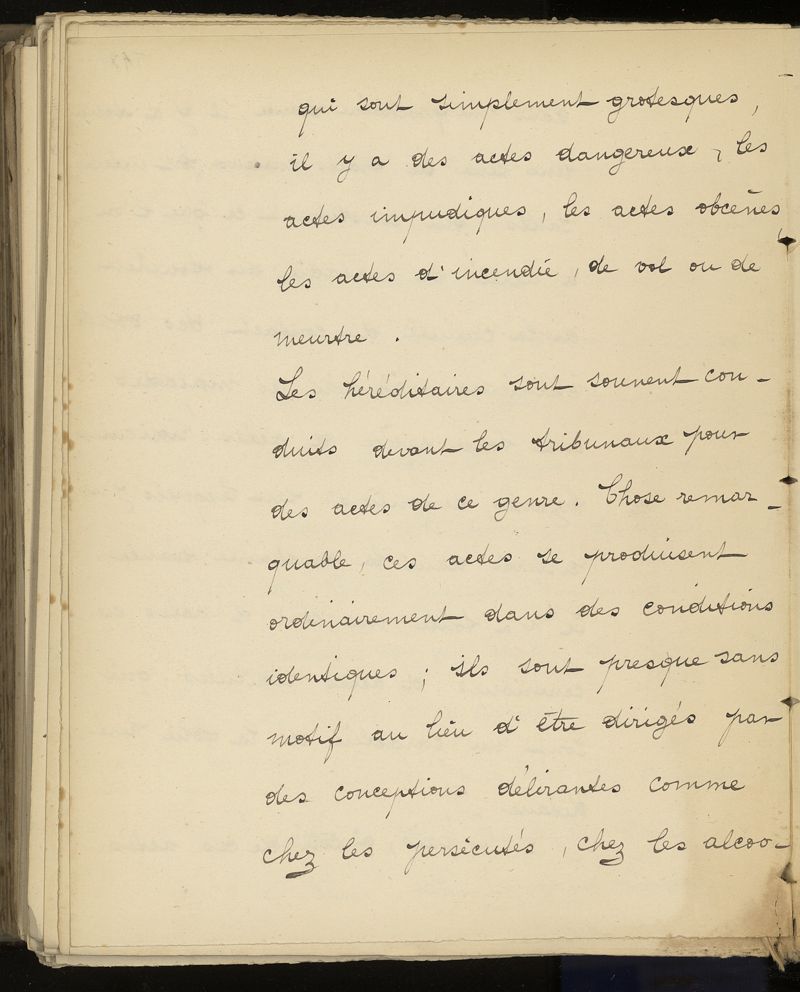 qui sont simplement grotesques,
il y a des actes dangereux, les
actes impudiques, les actes obcènes,
les actes d'incendie, de vol ou de
meurtre.
Les héréditaires sont souvent con-
duits devant les tribunaux pour
des actes de ce genre. Chose remar-
quable, ces actes se produisent
ordinairement dans des conditions
identiques; ils sont presque sans
motif au lieu d'être dirigés par
des conceptions délirantes comme
chez les persécutés, chez les alcoo-